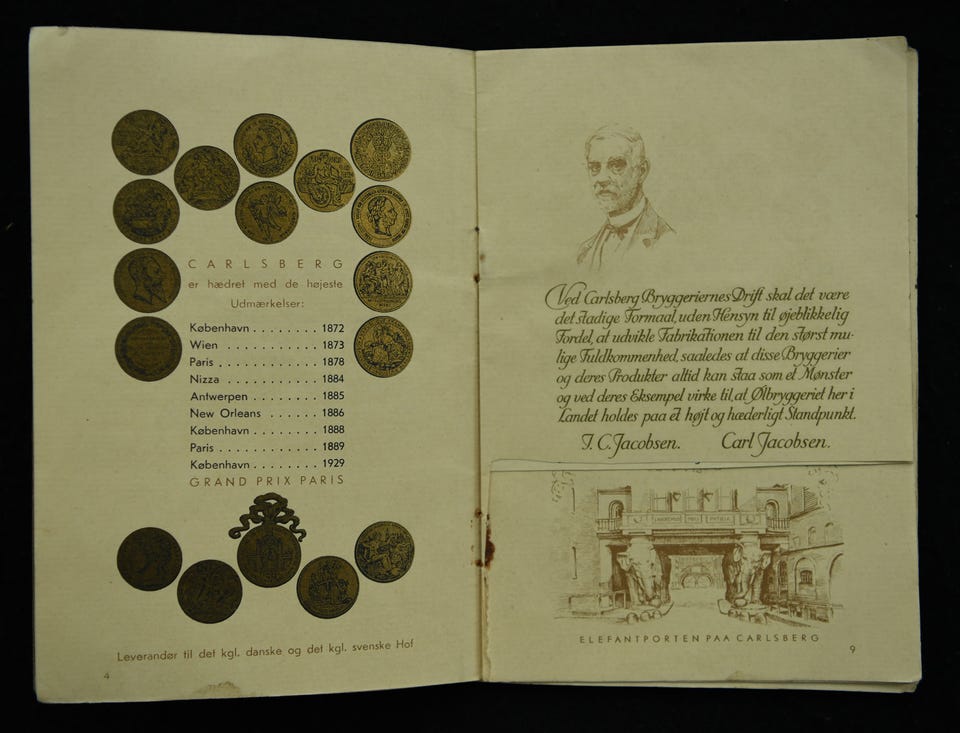 CARLSBERG
er hædret med de højeste
Udmærkelser:
København . . . . . . . . 1872
Wien . . . . . . . . . . . 1873
Paris . . . . . . . . . . . . 1878
Nizza . . . . . . . . . . . 1884
Antwerpen . . . . . . . . 1885
New Orleans . . . . . . 1886
København . . . . . . . . 1888
Paris . . . . . . . . . . . . 1889
København . . . . . . . . 1929
GRAND PRIX PARIS
Leverandør til det kgl. danske og det kgl. svenske Hof
4
Ved Carlsberg Bryggeriernes Drift skal det være
det stadige Formaal, uden Hensyn til øjeblikkelig
Fordel, at udvikle Fabrikationen til den størst mu-
lige Fuldkommenhed, saaledes at disse Bryggerier
og deres Produkter altid kan staa som et Mønster
og ved deres Eksempel virke til, at Ølbryggeriet her i
Landet holdes paa et højt og hæderligt Standpunkt.
J. C. Jacobsen. Carl Jacobsen.
LABOREMUS PRO PATRIA
ELEFANTPORTEN PAA CARLSBERG
9